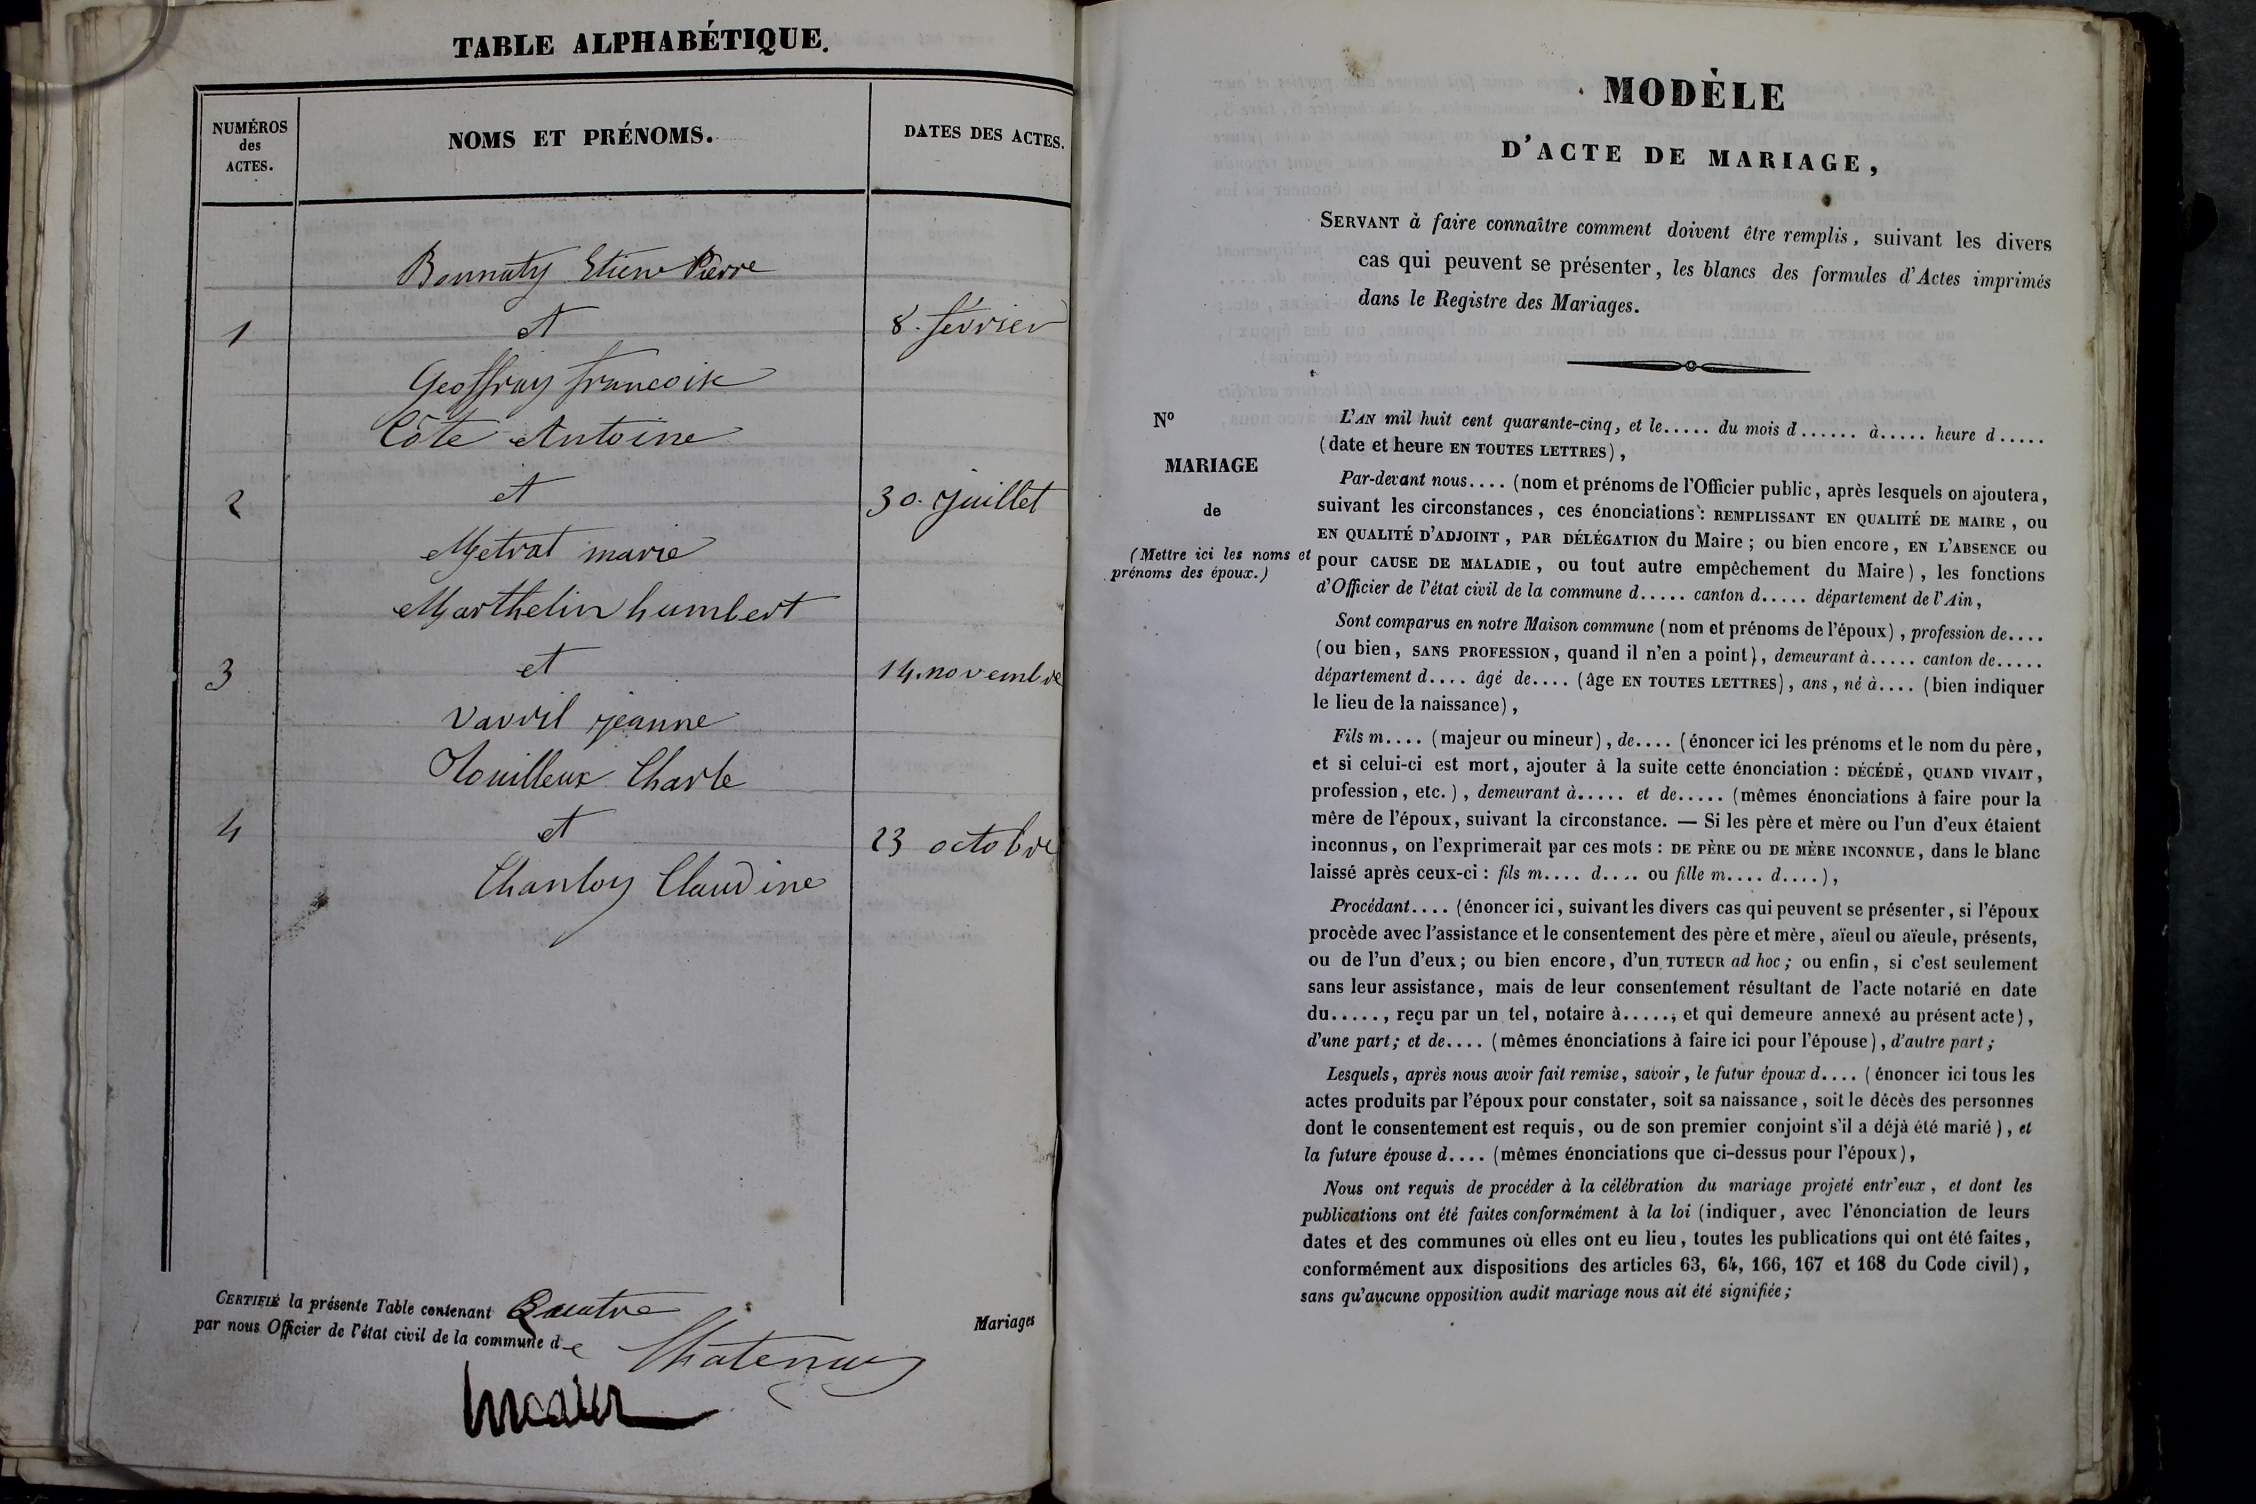 TABLE ALPHABÉTIQUE.
NUMÉROS
des
ACTES.
NOMS ET PRÉNOMS.
DATES DES ACTES.
Bonnaty Etiene Pierre
1
et
8. février
Geoffray francoise
Côte Antoine
2
et
30. juillet
Metrat marie
Marthelin humbert
3
et
14. novembre
Vavril jeanne
Touilleux Charle
4
et
23 octobre
Chanloy Claudine
CERTIFIÉ la présente Table contenant Quatre Mariages
par nous Officier de l'état civil de la commune de Chatenay
MODÈLE
D'ACTE DE MARIAGE,
SERVANT à faire connaître comment doivent être remplis, suivant les divers
cas qui peuvent se présenter, les blancs des formules d'Actes imprimés
dans le Registre des Mariages.
N°
MARIAGE
de
(Mettre ici les noms et
prénoms des époux.)
L'AN mil huit cent quarante-cinq, et le..... du mois d...... à..... heure d.....
(date et heure EN TOUTES LETTRES),
Par-devant nous.... (nom et prénoms de l'Officier public, après lesquels on ajoutera,
suivant les circonstances, ces énonciations : REMPLISSANT EN QUALITÉ DE MAIRE, ou
EN QUALITÉ D'ADJOINT, PAR DÉLÉGATION du Maire ; ou bien encore, EN L'ABSENCE ou
pour CAUSE DE MALADIE, ou tout autre empêchement du Maire), les fonctions
d'Officier de l'état civil de la commune d..... canton d..... département de l'Ain,
Sont comparus en notre Maison commune (nom et prénoms de l'époux), profession de....
(ou bien, SANS PROFESSION, quand il n'en a point), demeurant à..... canton de.....
département d.... âgé de.... (âge EN TOUTES LETTRES), ans, né à.... (bien indiquer
le lieu de la naissance),
Fils m.... (majeur ou mineur), de.... (énoncer ici les prénoms et le nom du père,
et si celui-ci est mort, ajouter à la suite cette énonciation : DÉCÉDÉ, QUAND VIVAIT,
profession, etc.), demeurant à..... et de..... (mêmes énonciations à faire pour la
mère de l'époux, suivant la circonstance. — Si les père et mère ou l'un d'eux étaient
inconnus, on l'exprimerait par ces mots : DE PÈRE ou DE MÈRE INCONNUE, dans le blanc
laissé après ceux-ci : fils m.... d.... ou fille m.... d....),
Procédant.... (énoncer ici, suivant les divers cas qui peuvent se présenter, si l'époux
procède avec l'assistance et le consentement des père et mère, aïeul ou aïeule, présents,
ou de l'un d'eux ; ou bien encore, d'un TUTEUR ad hoc ; ou enfin, si c'est seulement
sans leur assistance, mais de leur consentement résultant de l'acte notarié en date
du....., reçu par un tel, notaire à.....; et qui demeure annexé au présent acte),
d'une part ; et de.... (mêmes énonciations à faire ici pour l'épouse), d'autre part ;
Lesquels, après nous avoir fait remise, savoir, le futur époux d.... (énoncer ici tous les
actes produits par l'époux pour constater, soit sa naissance, soit le décès des personnes
dont le consentement est requis, ou de son premier conjoint s'il a déjà été marié), et
la future épouse d.... (mêmes énonciations que ci-dessus pour l'époux),
Nous ont requis de procéder à la célébration du mariage projeté entr'eux, et dont les
publications ont été faites conformément à la loi (indiquer, avec l'énonciation de leurs
dates et des communes où elles ont eu lieu, toutes les publications qui ont été faites,
conformément aux dispositions des articles 63, 64, 166, 167 et 168 du Code civil),
sans qu'aucune opposition audit mariage nous ait été signifiée ;